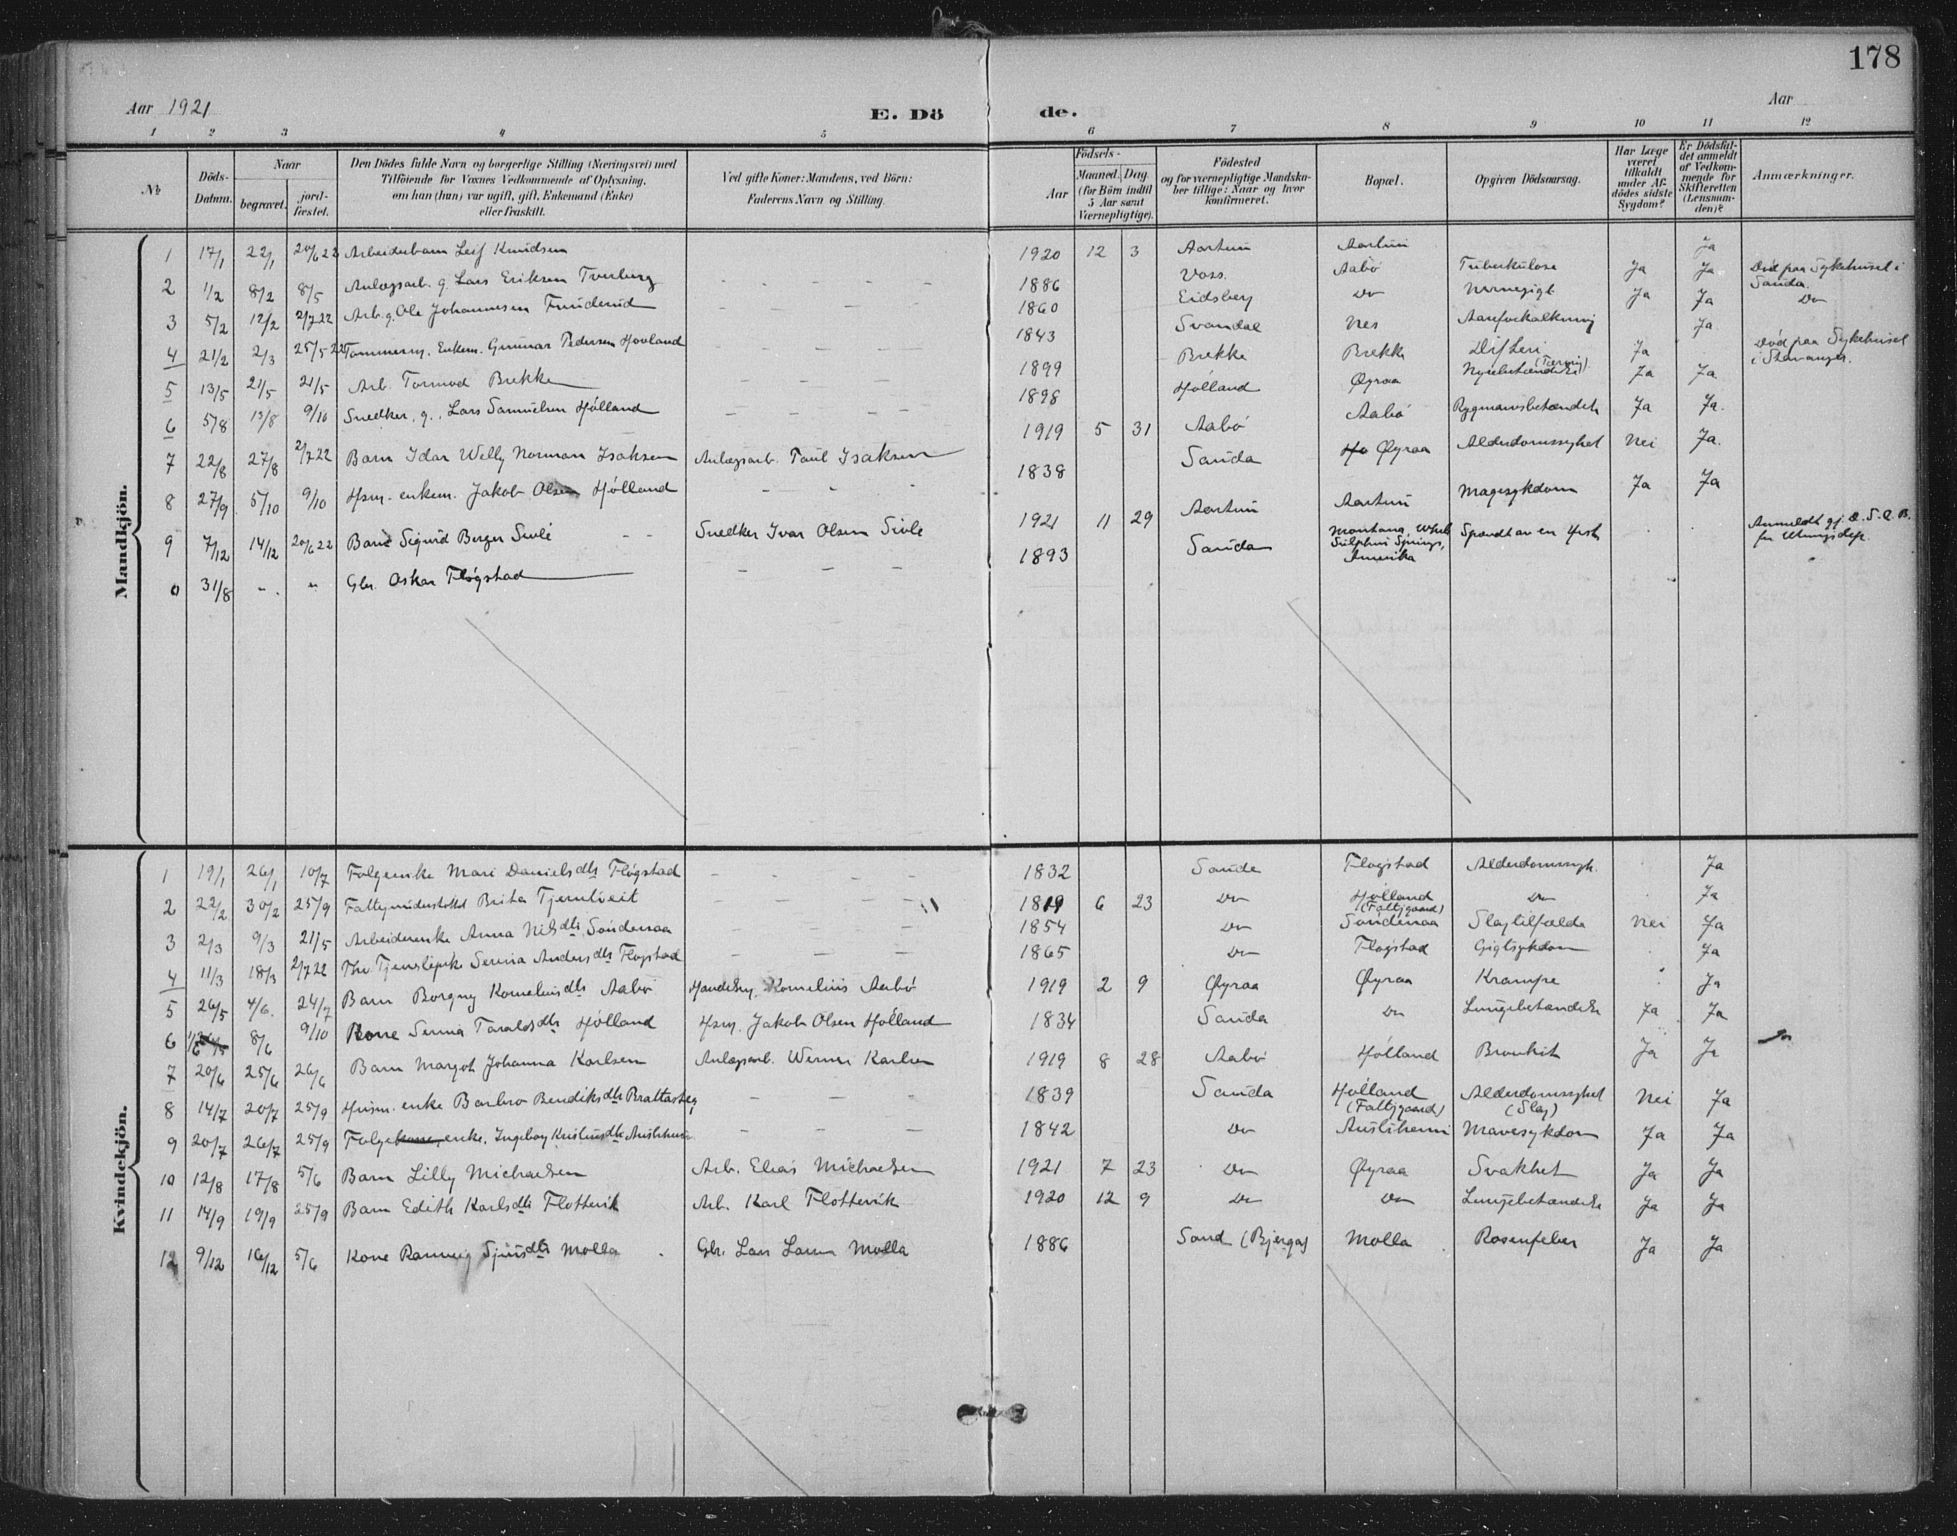 178
Aar 1921 E. Dö de. Aar
1 2 3 4 5 6 7 8 9 10 11 12
№ Döds-Datum. Naar begravet. jord-fæstet. Den Dödes fulde Navn og borgerlige Stilling (Næringsvei) med Tilföiende for Voxnes Vedkommende af Oplysning, om han (hun) var ugift, gift, Enkemand (Enke) eller fraskilt. Ved gifte Koner: Mandens, ved Börn: Faderens Navn og Stilling. Födsels- Aar Maaned. Dag. (for Börn indtil 5 Aar samt Værnepligtige). Födested og for værnepligtige Mandskaber tillige: Naar og hvor konfirmeret. Bopæl. Opgiven Dödsaarsag. Har Læge været tilkaldt under Afdödes sidste Sygdom? Er Dödsfaldet anmeldt af Vedkommende for Skifteretten (Lensmanden)? Anmærkninger.
Mandkjön.
1 17/1 22/1 20/6 22 Arbeiderbarn Leif Knudsen 1920 12 3 Aartun Aartun Ja
2 1/2 8/2 8/5 Anlægsarb. g. Lars Eriksen Tverberg - - - - 1886 Voss. Aabø Tuberkulose Ja Ja Död paa Sykehuset i Sauda.
3 5/2 12/2 2/7 22 Arb. g. Ole Johannesen Funderud - - - 1860 Eidsberg Do Nyregigt Ja Ja Do
4 21/2 2/3 25/5 22 Tømmerm. Enkem. Gunnar Pedersen Hovland - - - 1843 Svandal Nes Aareforkalkning Ja
5 13/5 21/5 21/5 Arb. Tormod Brekke - - - 1899 Brekke Brekke Difteri Ja Død paa Sykehuset i Stavanger.
6 5/8 13/8 9/10 Snedker, g., Lars Samuelsen Hølland - - - 1898 Hølland Øyraa Nyrebetændelse Ja Ja
7 22/8 27/8 2/7 22 Barn Idar Willy Norman Isaksen Anlægsarb. Paul Isaksen 1919 5 31 Aabø Aabø Rygmarvsbetændelse Ja Ja.
8 27/9 5/10 9/10 Hsm. enkem. Jakob Olsen Hølland - - - 1838 Sauda Øyraa Alderdomssyghet Nei Ja.
9 7/12 14/12 20/6 22 Barn Sigurd Berger Sivlé - - Snedker Ivar Olsen Sivle 1921 11 29 Aartun Aartun Magesykdom Ja Ja
0 31/8 - " Gbr. Oskar Fløgstad - - - 1893 Sauda Montana, White Sulphur Springs, Amerika Sparkt av en Hest Anmeldt gj.
Kvindekjön.
1 19/1 26/1 10/7 Følgeenke Mari Danielsdtr Fløgstad - - - - 1832 Sauda Fløgstad Alderdomssygh. Ja
2 22/2 30/2 25/9 Fattigunderstøttet Brita Tjerntveit - - - - 1819 6 23 Do Hølland (Fattiggaard) Do Ja
3 2/3 9/3 21/5 Arbeiderenke Anna Nilsdtr. Søndenaa - - - 1854 Do Søndenaa Slagtilfælde Nei Ja
4 11/3 18/3 2/7 22 Fhv. Tjenestepike Serina Andersdtr Fløgstad - - - 1865 Do Fløgstad Gigtsykdom Ja
5 26/5 4/6. 24/7 Barn Borgny Korneliusdtr Aabø Handelsm. Kornelius Aabø 1919 2 9 Øyraa Øyraa Krampe Ja
6 1/6 8/6 9/10 Kone Serina Taraldsdtr Hølland Hsm. Jakob Olsen Hølland 1834 Sauda Do Lungebetændelse Ja Ja
7 20/6 25/6 26/6 Barn Margot Johanna Karlsen Anlægsarb. Werner Karlsen 1919 8 28 Aabø Hølland Bronkit Ja Ja
8 14/7 20/7 25/9 Husm. enke Barbro Bendiksdtr Brattasteg - - - 1839 Sauda Hølland (Fattiggaard) Alderdomssyghet (Slag) Nei Ja
9 20/7 26/7 25/9 Følgekone, enke, Ingeborg Kristensdtr Austrheim - - - 1842 Do Austrheim Mavesykdom Ja Ja
10 12/8 17/8 5/6 Barn Lilly Michaelsen Arb. Elias Michaelsen 1921 7 23 Do Øyraa Svakhet Ja Ja
11 14/9 19/9 25/9 Barn Edith Karlsdtr Flottevik Arb. Karl Flottevik 1920 12 9 Do Do Lungebetændelse Ja Ja
12 9/12 16/12 5/6 Kone Rannveig Sjursdtr Molla Gbr. Lars Larsen Molla 1886 Sand (Bjerga) Molla Rosenfeber Ja Ja